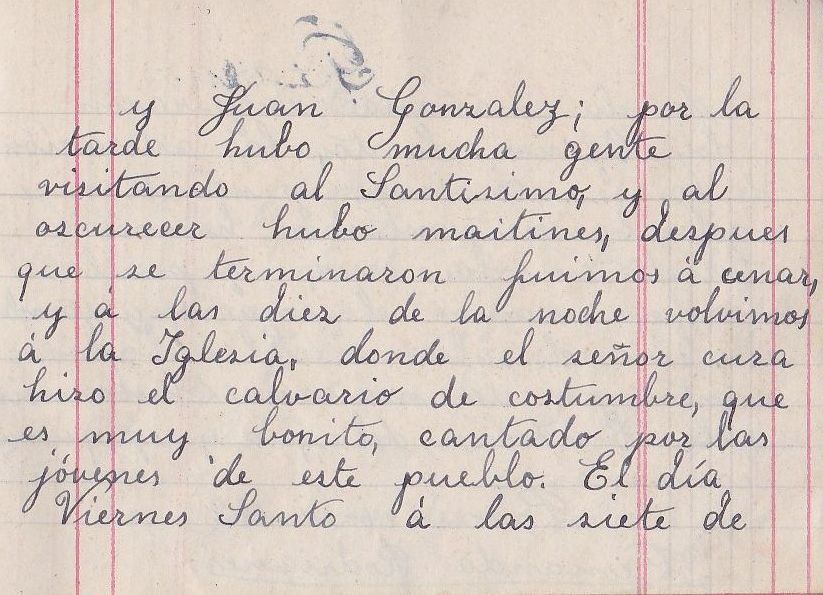 y Juan Gonzalez; por la
tarde hubo mucha gente
visitando al Santisimo, y al
oscurecer hubo maitines, despues
que se terminaron fuimos á cenar,
y á las diez de la noche volvimos
á la Iglesia, donde el señor cura
hizo el calvario de costumbre, que
es muy bonito, cantado por las
jóvenes de este pueblo. El día
Viernes Santo á las siete de